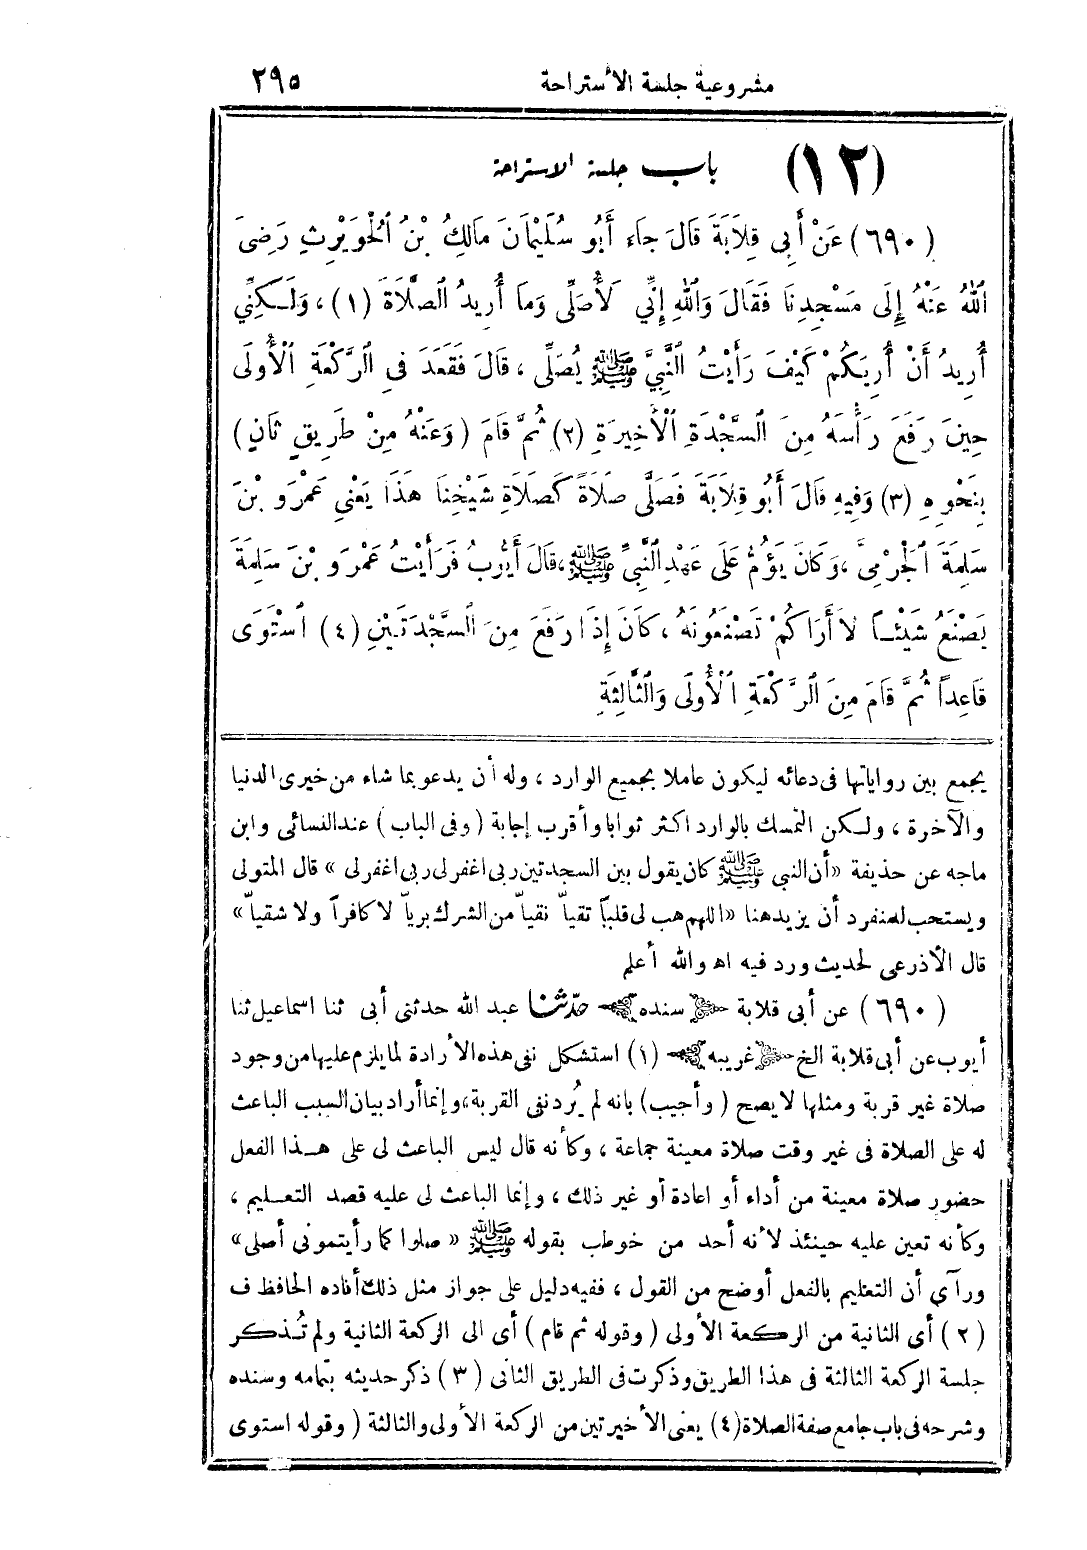 مشروعية جلسة الأستراحة ٢٩٥
(١٢) باب جلسة الاستراحة
(٦٩٠) عَنْ أَبِي قِلَابَةَ قَالَ جَاءَ أَبُو سُلَيْمَانَ مَالِكُ بْنُ الْحُوَيْرِثِ رَضِىَ
اللهُ عَنْهُ إِلَى مَسْجِدِنَا فَقَالَ وَاللهِ إِنِّي لَأُصَلِّى وَمَا أُرِيدُ الصَّلَاةَ (١)، وَلَـكِنِّي
أُرِيدُ أَنْ أُرِيَكُمْ كَيْفَ رَأَيْتُ النَّبِيَّ ﷺ يُصَلِّى، قَالَ فَقَعَدَ فِي الرَّكْعَةِ الْأُولَى
حِينَ رَفَعَ رَأْسَهُ مِنَ السَّجْدَةِ الْأَخِيرَةِ (٢) ثُمَّ قَامَ (وَعَنْهُ مِنْ طَرِيقٍ ثَانٍ)
بِنَحْوِهِ (٣) وَفِيهِ قَالَ أَبُو قِلَابَةَ فَصَلَّى صَلَاةً كَصَلَاةِ شَيْخِنَا هَذَا يَعْنِي عَمْرَو بْنَ
سَلِمَةَ الْجَرْمِىَّ، وَكَانَ يَؤُمُّ عَلَى عَهْدِ النَّبِيِّ ﷺ، قَالَ أَيُّوبُ فَرَأَيْتُ عَمْرَو بْنَ سَلِمَةَ
يَصْنَعُ شَيْئًـا لَا أَرَاكُمْ تَصْنَعُونَهُ، كَانَ إِذَا رَفَعَ مِنَ السَّجْدَتَيْنِ (٤) اسْتَوَى
قَاعِدًا ثُمَّ قَامَ مِنَ الرَّكْعَةِ الْأُولَى وَالثَّالِثَةِ
يجمع بين رواياتها فى دعائه ليكون عاملا بجميع الوارد، وله أن يدعو بما شاء من خيرى الدنيا
والآخرة، ولـكن التمسك بالوارد اكثر ثوابا وأقرب إجابة (وفى الباب) عند النسائى وابن
ماجه عن حذيفة «أن النبي ﷺ كان يقول بين السجدتين ربى اغفر لى ربى اغفر لى» قال المتولى
ويستحب للمنفرد أن يزيد هنا «اللهم هب لى قلباً تقياً نقياً من الشرك برياً لا كافراً ولا شقياً»
قال الأذرعى لحديث ورد فيه اه والله أعلم
(٦٩٠) عن أبى قلابة سنده حدّثنا عبد الله حدثنى أبى ثنا اسماعيل ثنا
أيوب عن أبى قلابة الخ غريبه (١) استشكل نفى هذه الأرادة لما يلزم عليها من وجود
صلاة غير قربة ومثلها لا يصح (وأجيب) بانه لم يُرد نفى القربة، وإنما أراد بيان السبب الباعث
له على الصلاة فى غير وقت صلاة معينة جماعة، وكأنه قال ليس الباعث لى على هـذا الفعل
حضور صلاة معينة من أداء أو اعادة أو غير ذلك، وإنما الباعث لى عليه قصد التعـليم،
وكأنه تعين عليه حينئذ لأنه أحد من خوطب بقوله ﷺ «صلوا كما رأيتمونى أصلى»
ورآي أن التعليم بالفعل أوضح من القول، ففيه دليل على جواز مثل ذلك أفاده الحافظ ف
(٢) أى الثانية من الركعة الأولى (وقوله ثم قام) أى الى الركعة الثانية ولم تُـذكر
جلسة الركعة الثالثة فى هذا الطريق وذكرت فى الطريق الثانى (٣) ذكر حديثه بتمامه وسنده
وشرحه فى باب جامع صفة الصلاة (٤) يعنى الأخيرتين من الركعة الأولى والثالثة (وقوله استوى